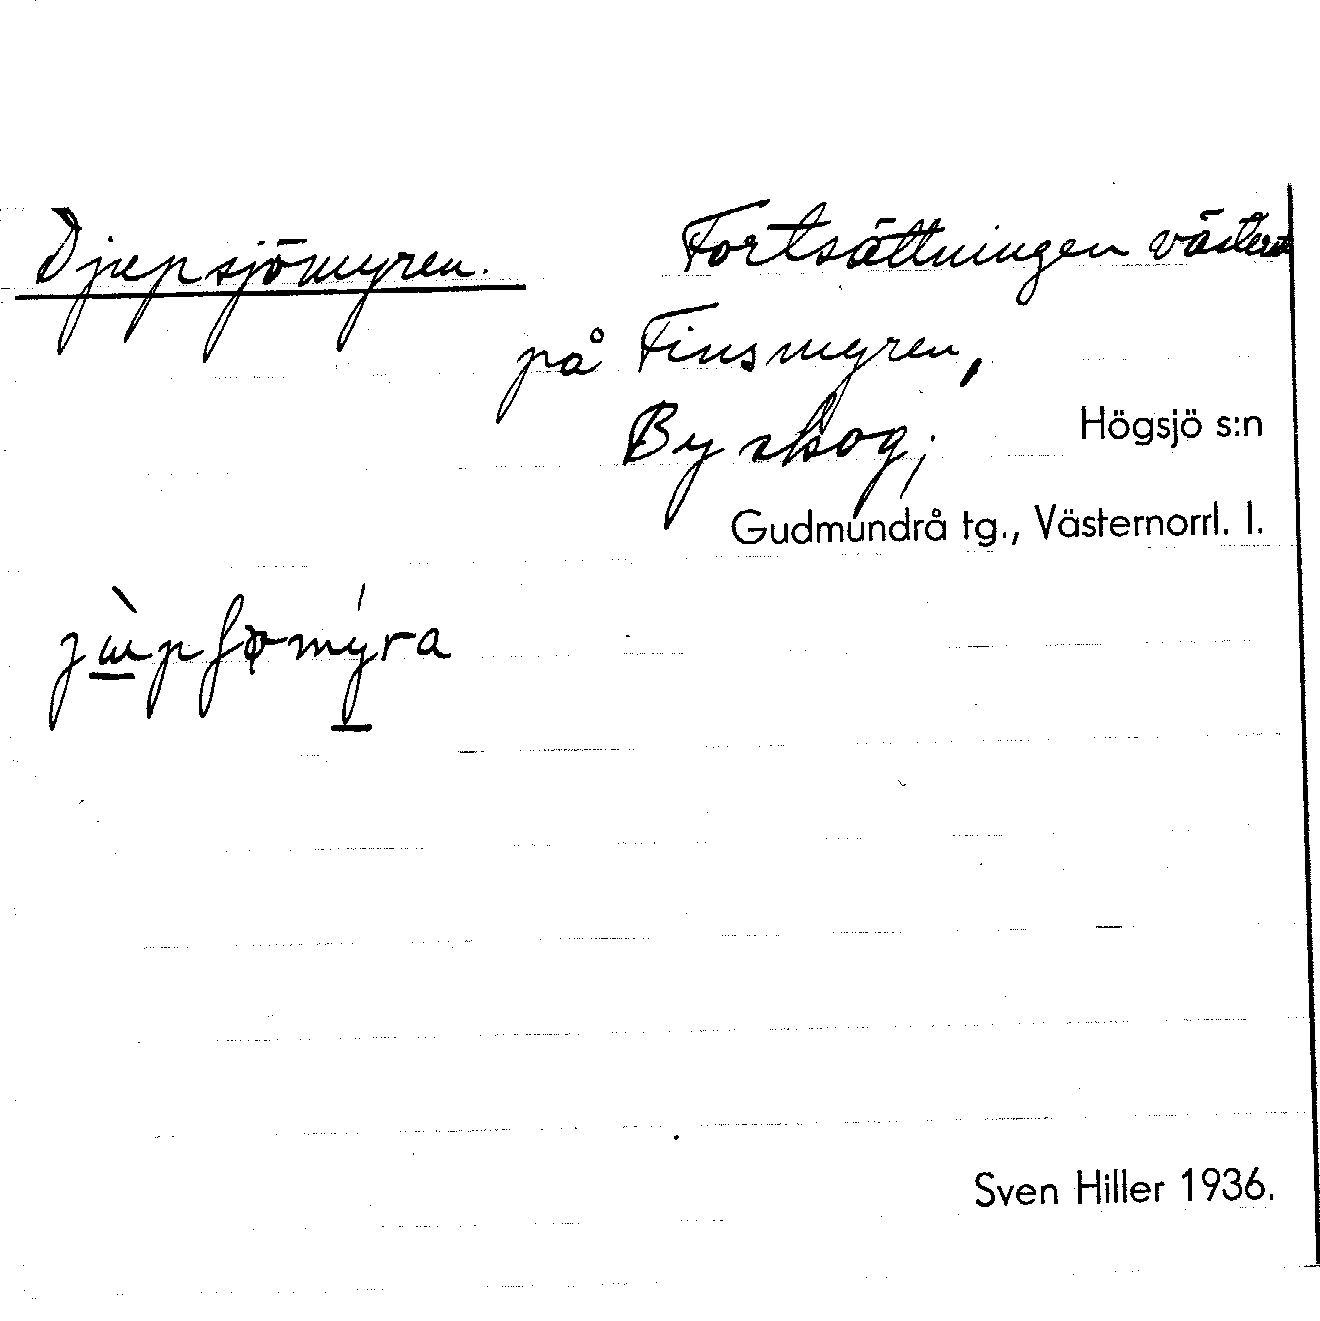 Djupsjömyren. Fortsättningen västerut
på Finsmyren,
Byskog; Högsjö s:n
Gudmundrå tg., Västernorrl. l.
Sven Hiller 1936.